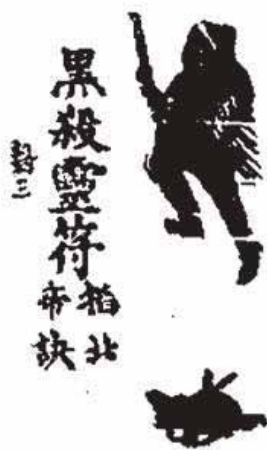 黑殺靈符
掐北
帝訣
三